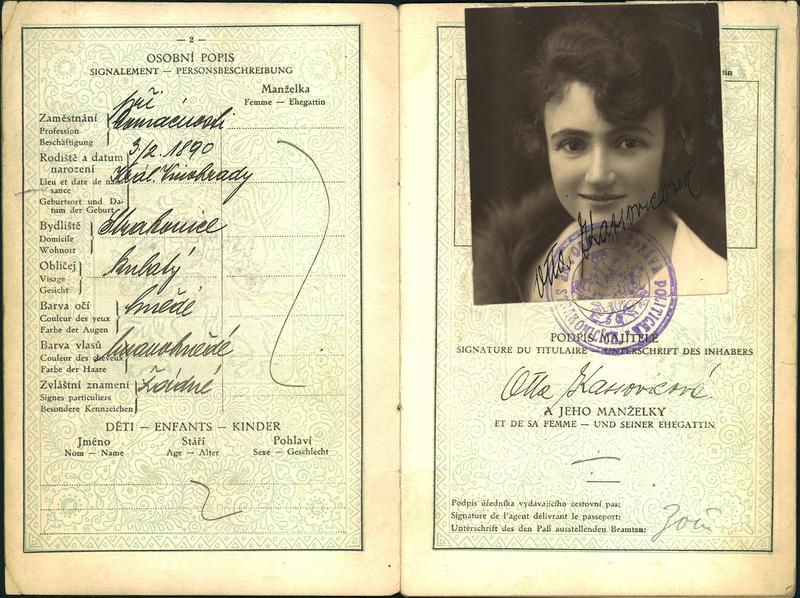 — 2 —
OSOBNÍ POPIS
SIGNALEMENT — PERSONSBESCHREIBUNG
Manželka
Femme — Ehegattin
při
Zaměstnání domácnosti
Profession
Beschäftigung
Rodiště a datum narození
3/2. 1890
Král. Vinohrady
Lieu et date de naissance
Geburtsort und Datum der Geburt
Bydliště Strakonice
Domicile
Wohnort
Obličej kulatý
Visage
Gesicht
Barva očí hnědé
Couleur des yeux
Farbe der Augen
Barva vlasů tmavohnědé
Couleur des cheveux
Farbe der Haare
Zvláštní znamení Žádné
Signes particuliers
Besondere Kennzeichen
DĚTI — ENFANTS — KINDER
Jméno Stáří Pohlaví
Nom — Name Age — Alter Sexe — Geschlecht
Otta Kassovicová
SPRÁVA POLITICKÁ
PODPIS MAJITELE
SIGNATURE DU TITULAIRE — UNTERSCHRIFT DES INHABERS
Otta Kassovicová
A JEHO MANŽELKY
ET DE SA FEMME — UND SEINER EHEGATTIN
Podpis úředníka vydávajícího cestovní pas:
Signature de l'agent délivrant le passeport:
Unterschrift des den Paß ausstellenden Beamten: